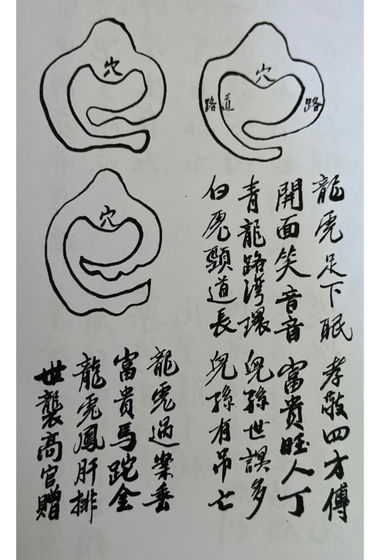 穴
穴
路道
路
穴
龍虎足下眠 孝敬四方傳
開面笑音音 富貴旺人丁
青龍路灣環 兒孫世誤多
白虎顕道長 兒孫有吊亡
龍虎過案垂
富貴馬跎金
龍虎鳳肝排
世襲高官贈